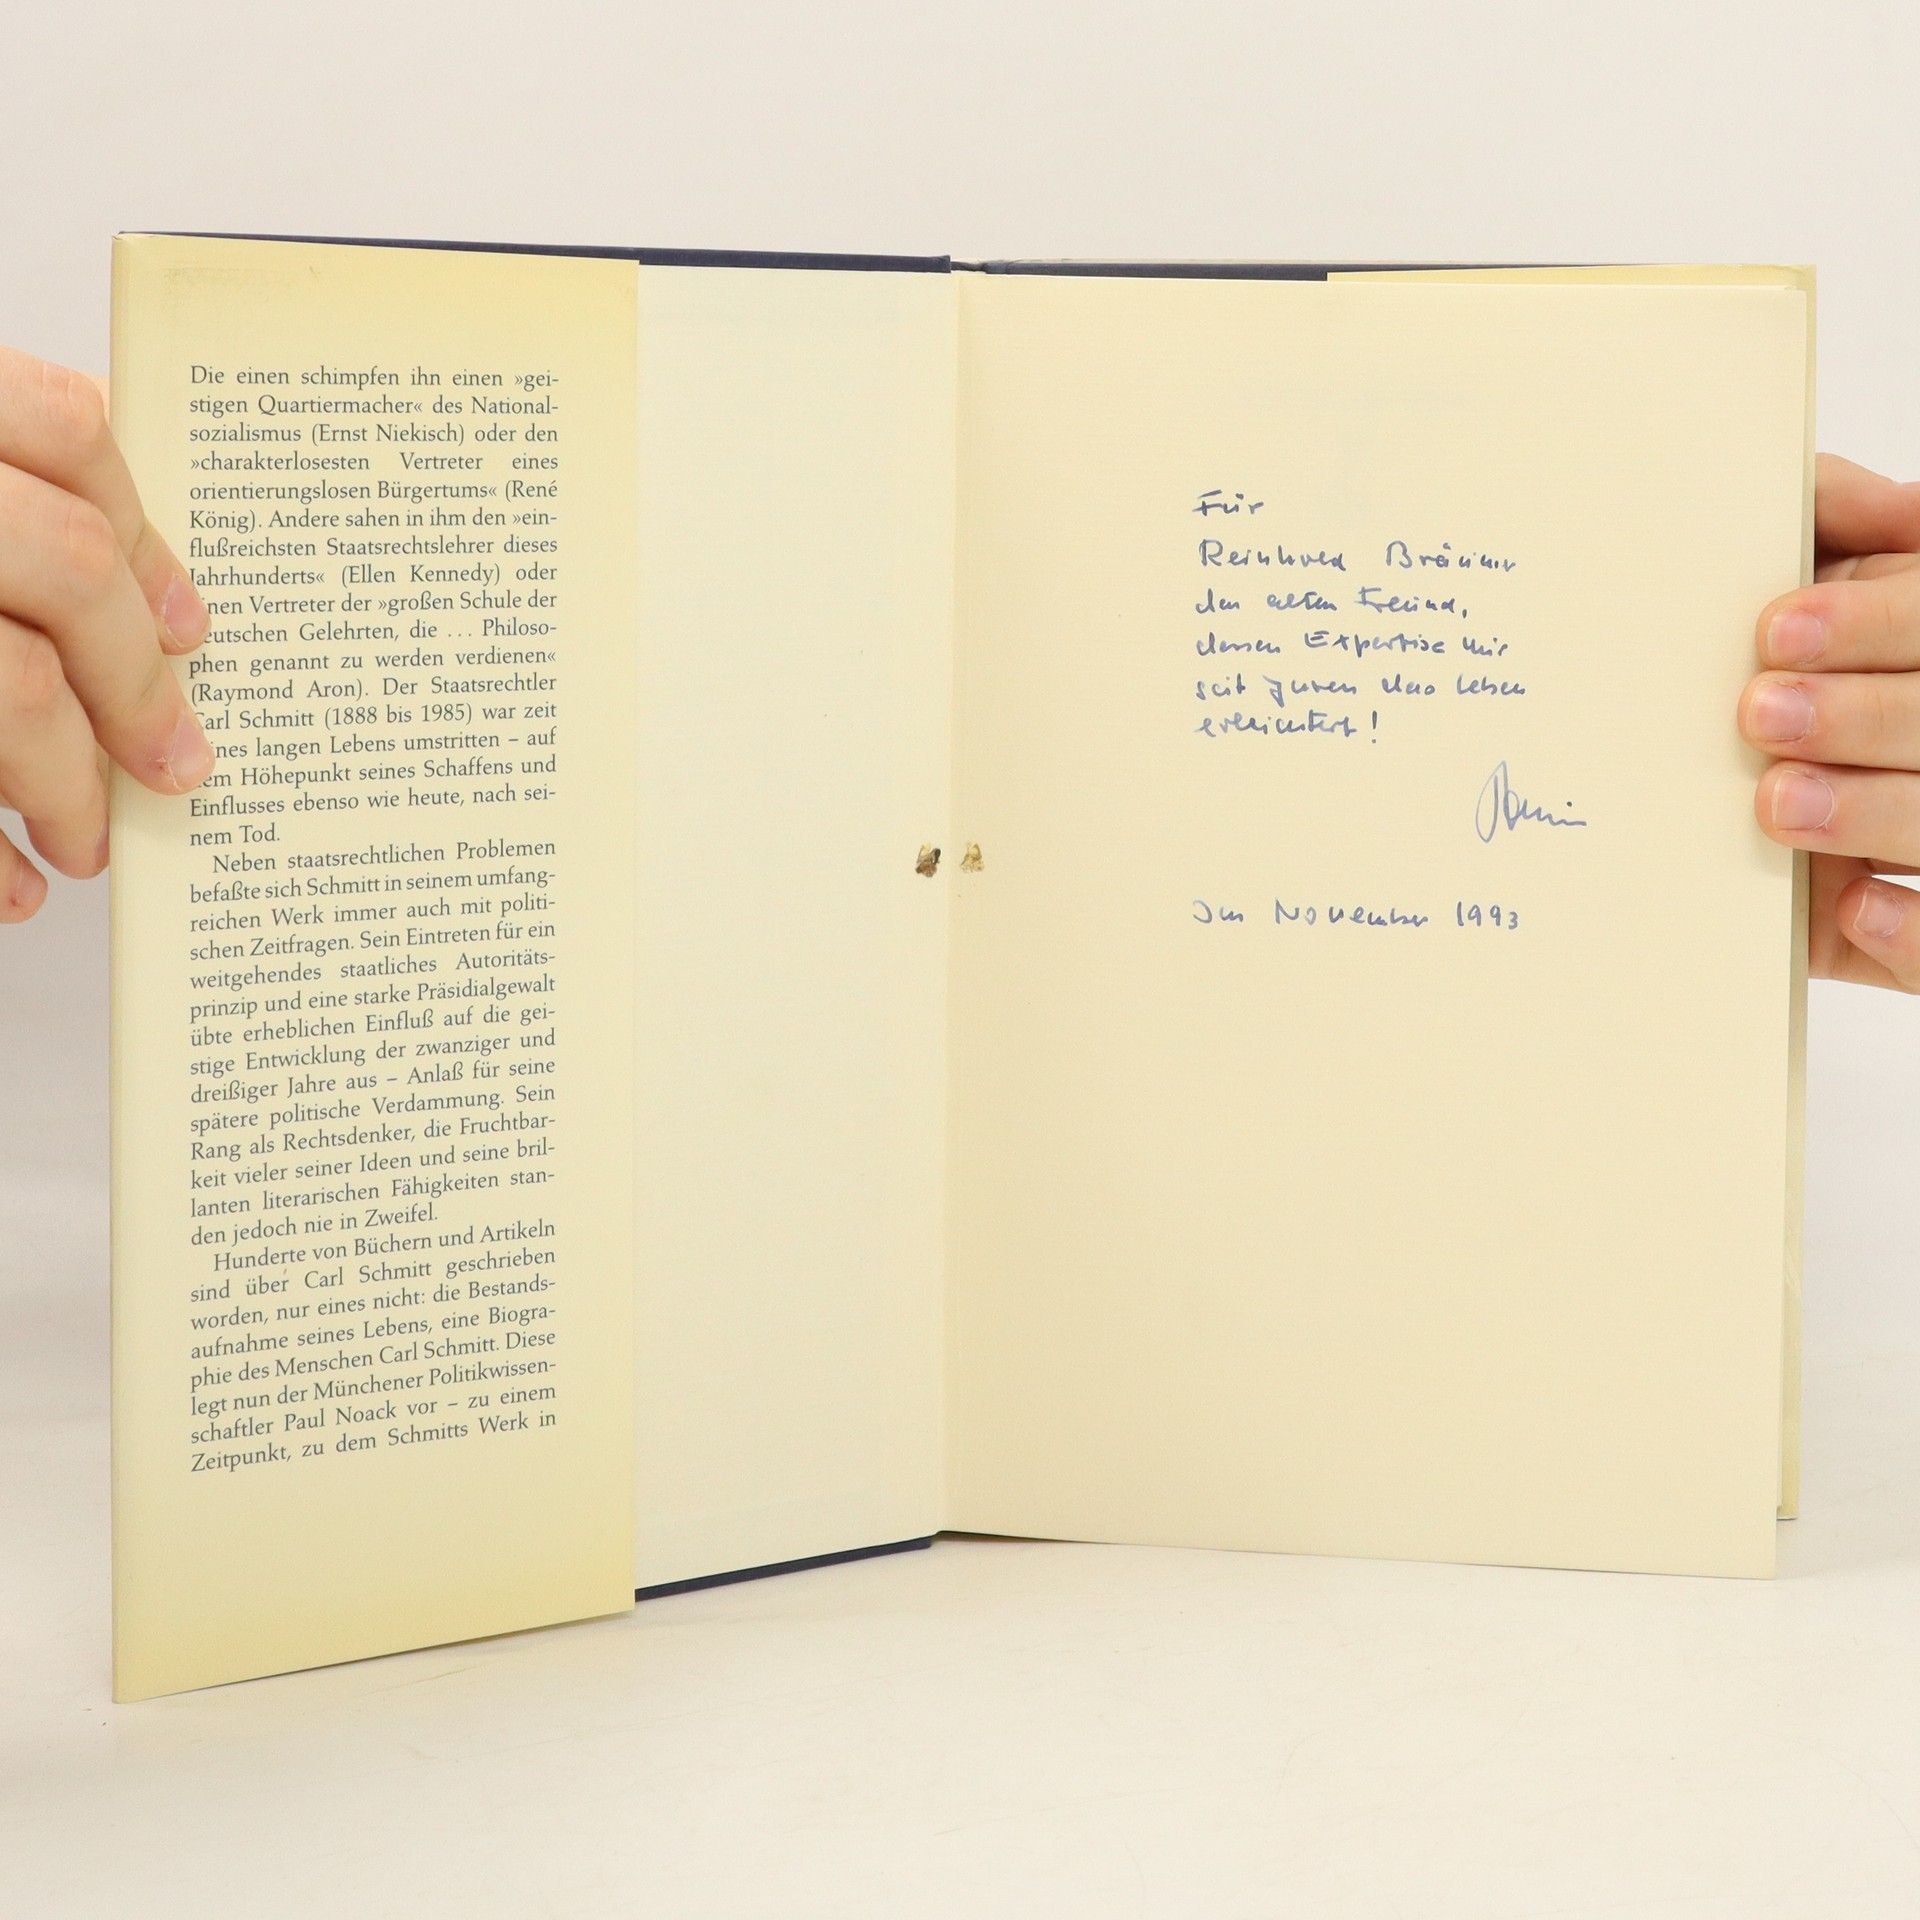 Die einen schimpfen ihn einen »gei-
stigen Quartiermacher« des National-
sozialismus (Ernst Niekisch) oder den
»charakterlosesten Vertreter eines
orientierungslosen Bürgertums« (René
König). Andere sahen in ihm den »ein-
flußreichsten Staatsrechtslehrer dieses
Jahrhunderts« (Ellen Kennedy) oder
inen Vertreter der »großen Schule der
eutschen Gelehrten, die ... Philoso-
phen genannt zu werden verdienen«
(Raymond Aron). Der Staatsrechtler
Carl Schmitt (1888 bis 1985) war zeit
ines langen Lebens umstritten – auf
em Höhepunkt seines Schaffens und
Einflusses ebenso wie heute, nach sei-
nem Tod.
Neben staatsrechtlichen Problemen
befaßte sich Schmitt in seinem umfang-
reichen Werk immer auch mit politi-
schen Zeitfragen. Sein Eintreten für ein
weitgehendes staatliches Autoritäts-
prinzip und eine starke Präsidialgewalt
übte erheblichen Einfluß auf die gei-
stige Entwicklung der zwanziger und
dreißiger Jahre aus – Anlaß für seine
spätere politische Verdammung. Sein
Rang als Rechtsdenker, die Fruchtbar-
keit vieler seiner Ideen und seine bril-
lanten literarischen Fähigkeiten stan-
den jedoch nie in Zweifel.
Hunderte von Büchern und Artikeln
sind über Carl Schmitt geschrieben
worden, nur eines nicht: die Bestands-
aufnahme seines Lebens, eine Biogra-
phie des Menschen Carl Schmitt. Diese
legt nun der Münchener Politikwissen-
schaftler Paul Noack vor – zu einem
Zeitpunkt, zu dem Schmitts Werk in
Für
Reinhold
den alten Freund,
dessen Expertise mir
seit Jahren das Leben
erleichtert!
Im November 1993